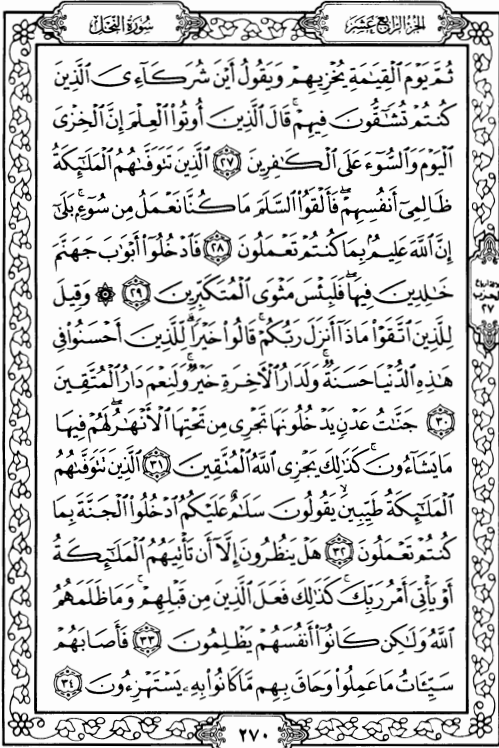 سُورَةُ النَّحْلِ الجُزْءُ الرَّابِعَ عَشَرَ
ثُمَّ يَوْمَ ٱلْقِيَٰمَةِ يُخْزِيهِمْ وَيَقُولُ أَيْنَ شُرَكَآءِىَ ٱلَّذِينَ
كُنتُمْ تُشَٰٓقُّونَ فِيهِمْ ۚ قَالَ ٱلَّذِينَ أُوتُوا۟ ٱلْعِلْمَ إِنَّ ٱلْخِزْىَ
ٱلْيَوْمَ وَٱلسُّوٓءَ عَلَى ٱلْكَٰفِرِينَ ٢٧ ٱلَّذِينَ تَتَوَفَّىٰهُمُ ٱلْمَلَٰٓئِكَةُ
ظَالِمِىٓ أَنفُسِهِمْ ۖ فَأَلْقَوُا۟ ٱلسَّلَمَ مَا كُنَّا نَعْمَلُ مِن سُوٓءٍۭ ۚ بَلَىٰٓ
إِنَّ ٱللَّهَ عَلِيمٌۢ بِمَا كُنتُمْ تَعْمَلُونَ ٢٨ فَٱدْخُلُوٓا۟ أَبْوَٰبَ جَهَنَّمَ
خَٰلِدِينَ فِيهَا ۖ فَلَبِئْسَ مَثْوَى ٱلْمُتَكَبِّرِينَ ٢٩ ۞ وَقِيلَ
لِلَّذِينَ ٱتَّقَوْا۟ مَاذَآ أَنزَلَ رَبُّكُمْ ۚ قَالُوا۟ خَيْرًا ۗ لِّلَّذِينَ أَحْسَنُوا۟ فِى
هَٰذِهِ ٱلدُّنْيَا حَسَنَةٌ ۚ وَلَدَارُ ٱلْءَاخِرَةِ خَيْرٌ ۚ وَلَنِعْمَ دَارُ ٱلْمُتَّقِينَ
٣٠ جَنَّٰتُ عَدْنٍ يَدْخُلُونَهَا تَجْرِى مِن تَحْتِهَا ٱلْأَنْهَٰرُ ۖ لَهُمْ فِيهَا
مَا يَشَآءُونَ ۚ كَذَٰلِكَ يَجْزِى ٱللَّهُ ٱلْمُتَّقِينَ ٣١ ٱلَّذِينَ تَتَوَفَّىٰهُمُ
ٱلْمَلَٰٓئِكَةُ طَيِّبِينَ ۙ يَقُولُونَ سَلَٰمٌ عَلَيْكُمُ ٱدْخُلُوا۟ ٱلْجَنَّةَ بِمَا
كُنتُمْ تَعْمَلُونَ ٣٢ هَلْ يَنظُرُونَ إِلَّآ أَن تَأْتِيَهُمُ ٱلْمَلَٰٓئِكَةُ
أَوْ يَأْتِىَ أَمْرُ رَبِّكَ ۚ كَذَٰلِكَ فَعَلَ ٱلَّذِينَ مِن قَبْلِهِمْ ۚ وَمَا ظَلَمَهُمُ
ٱللَّهُ وَلَٰكِن كَانُوٓا۟ أَنفُسَهُمْ يَظْلِمُونَ ٣٣ فَأَصَابَهُمْ
سَيِّـَٔاتُ مَا عَمِلُوا۟ وَحَاقَ بِهِم مَّا كَانُوا۟ بِهِۦ يَسْتَهْزِءُونَ ٣٤
الحزب
٢٧
٢٧٠